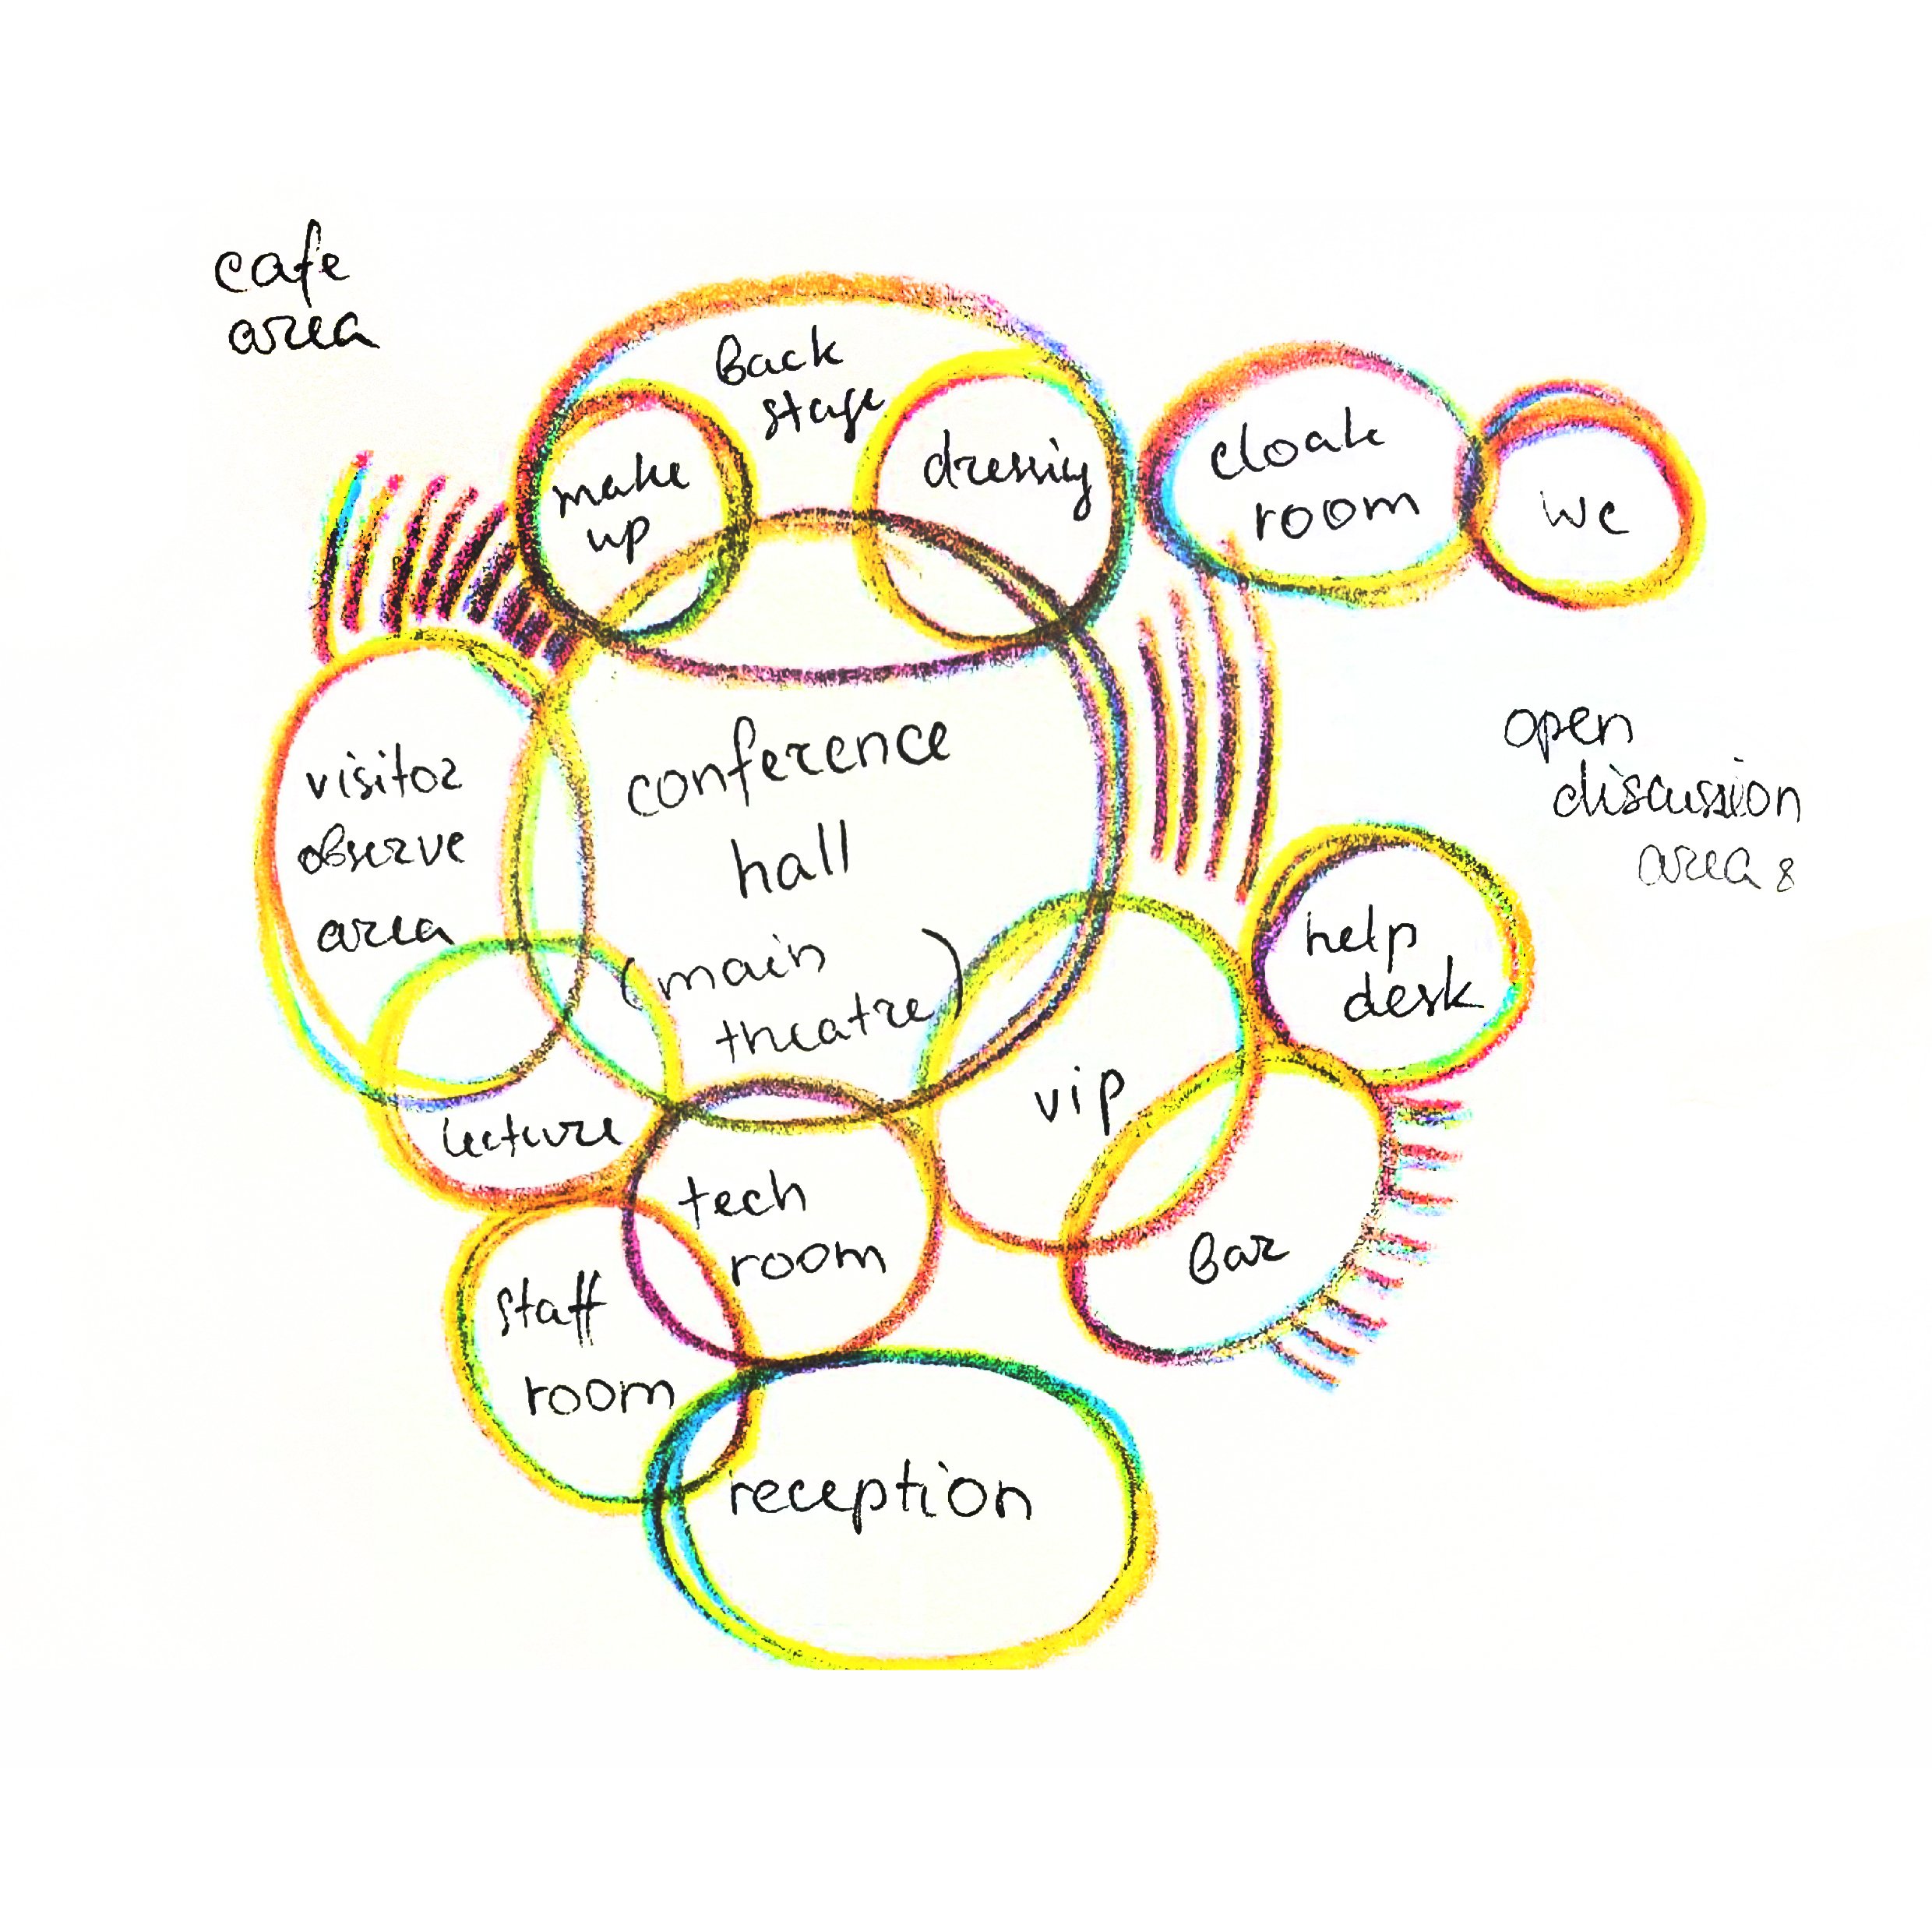 cafe
area
Back
stage
make
up
dressing
cloak
room
wc
visitor
observe
area
conference
hall
(main
theatre)
open
discussion
area 8
help
desk
vip
lecture
tech
room
Bar
staff
room
reception